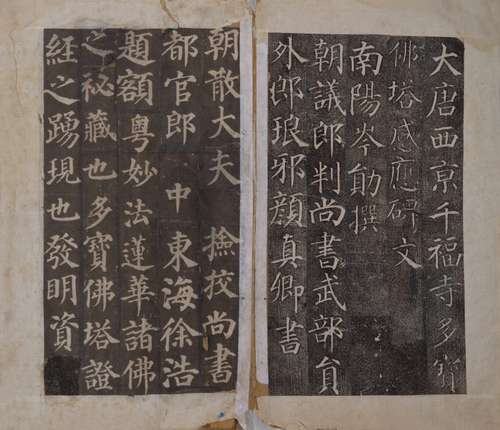 大唐西京千福寺多寳
佛塔感應碑文
南陽岑勛撰
朝議郎判尚書武部貟
外郎琅邪顔真卿書
朝散大夫撿挍尚書
都官郎中東海徐浩
題額粤妙法蓮華諸佛
之祕藏也多寳佛塔證
經之踴現也發明資